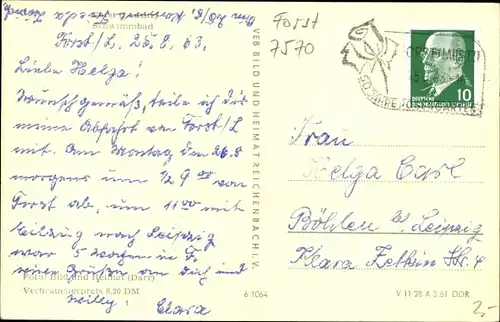 Schwimmbad
Forst/L. 25.8.63.
Liebe Helga!
Wunschgemäß, teile ich dir
meine Abfahrt von Forst/L
mit. Am Montag den 26.8
morgens um 1/2 9 00 von
Forst ab, um 11 00 mit
Eilzug nach Leipzig
war 5 Wochen in F.
viele Grüße an Dich und
Willy
Clara
Foto: Bild und Heimat (Darr)
Verbraucherpreis 0,20 DM
VEB BILD UND HEIMAT REICHENBACH I. V.
Forst
7570
FORST (LAUSITZ)
50 JAHRE ROSENGARTEN
DEUTSCHE
DEMOKRATISCHE REPUBLIK
10
Frau
Helga Carl
Böhlen bei Leipzig
Klara Zetkin Str. 4
6 1064
V 11 28 A 3/61 DDR
2,-